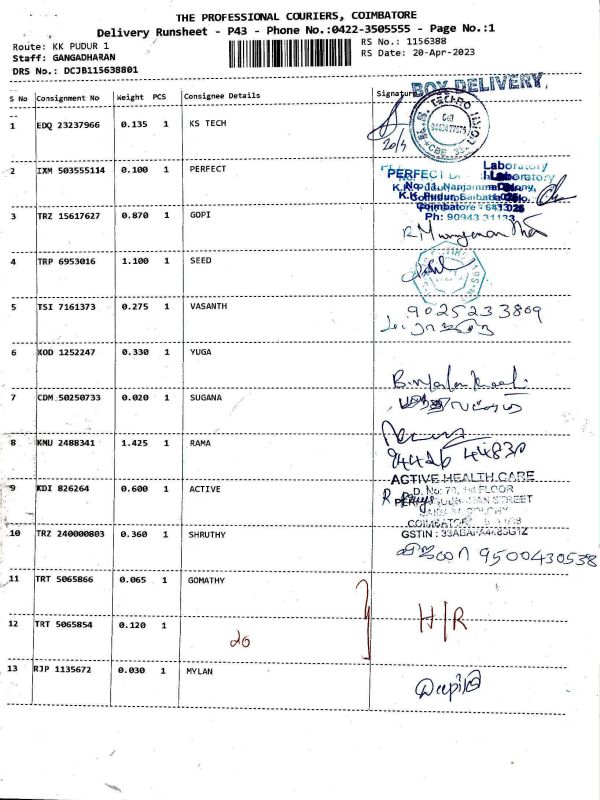 THE PROFESSIONAL COURIERS, COIMBATORE
Delivery Runsheet - P43 - Phone No.:0422-3505555 - Page No.:1
Route: KK PUDUR 1
Staff: GANGADHARAN
DRS No.: DCJB115638801
RS No.: 1156388
RS Date: 20-Apr-2023
S No Consignment No Weight PCS Consignee Details Signature
BOX DELIVERY
1 EDQ 23237966 0.135 1 KS TECH
20/4
2 IXM 503555114 0.100 1 PERFECT
Laboratory
PERFECT
Coimbatore - 641 025
Ph: 90943 31133
3 TRZ 15617627 0.870 1 GOPI
4 TRP 6953016 1.100 1 SEED
5 TSI 7161373 0.275 1 VASANTH
9025233809
6 KOD 1252247 0.330 1 YUGA
7 CDM 50250733 0.020 1 SUGANA
8 KMU 2488341 1.425 1 RAMA
94426 44830
9 KDI 826264 0.600 1 ACTIVE
ACTIVE HEALTH CARE
FLOOR
STREET
COIMBATORE
10 TRZ 240000803 0.360 1 SHRUTHY
GSTIN :
9500430538
11 TRT 5065866 0.065 1 GOMATHY
H/R
12 TRT 5065854 0.120 1
20
13 RJP 1135672 0.030 1 MYLAN